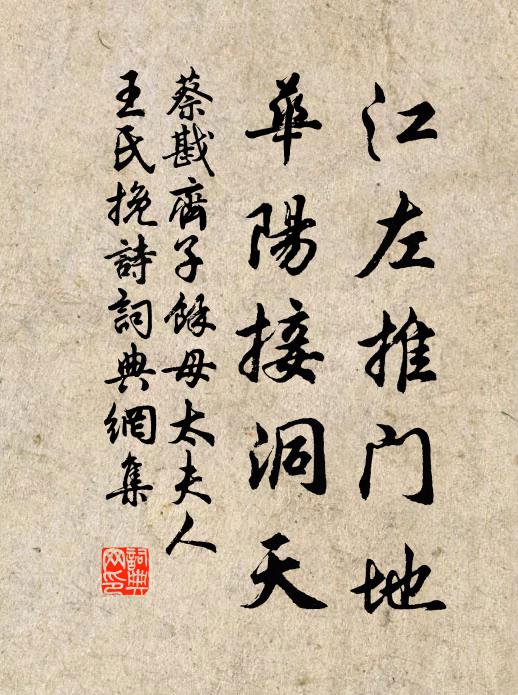 江左推門地
華陽接洞天
蔡戡齊子餘母太夫人
王氏挽詩詞典網集
詞典网印